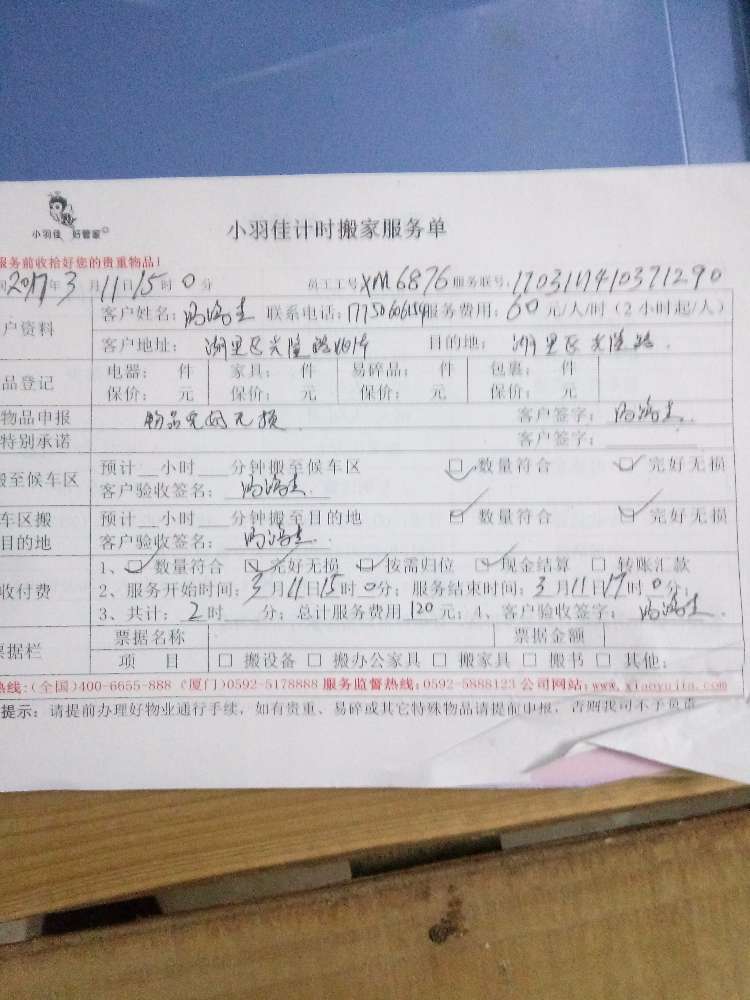 小羽佳 好管家
小羽佳计时搬家服务单
服务前收拾好您的贵重物品!
2017年3月11日15时0分 员工工号XM6876 服务联号:
户资料 客户姓名: 联系电话: 服务费用:60元/人/时(2小时起/人)
客户地址:湖里区 目的地:湖里区
品登记 电器: 件 家具: 件 易碎品: 件 包裹: 件
保价: 元 保价: 元 保价: 元 保价: 元
物品申报 物品完好无损 客户签字:
特别承诺 客户签字:
搬至候车区 预计 小时 分钟搬至候车区 数量符合 完好无损
客户验收签名:
车区搬 预计 小时 分钟搬至目的地 数量符合 完好无损
目的地 客户验收签名:
1、数量符合 完好无损 按需归位 现金结算 □ 转账汇款
收付费 2、服务开始时间:3月11日15时0分;服务结束时间:3月11日17时0分;
3、共计:2时 分;总计服务费用120元;4、客户验收签字:
票据栏 票据名称 票据金额
项 目 □ 搬设备 □ 搬办公家具 □ 搬家具 □ 搬书 □ 其他:
热线:(全国)400-6655-888 (厦门)0592-5178888 服务监督热线:0592-5888123 公司网站:www.xiaoyujia.com
提示:请提前办理好物业通行手续,如有贵重、易碎或其它特殊物品请提前申报,否则我司不予负责